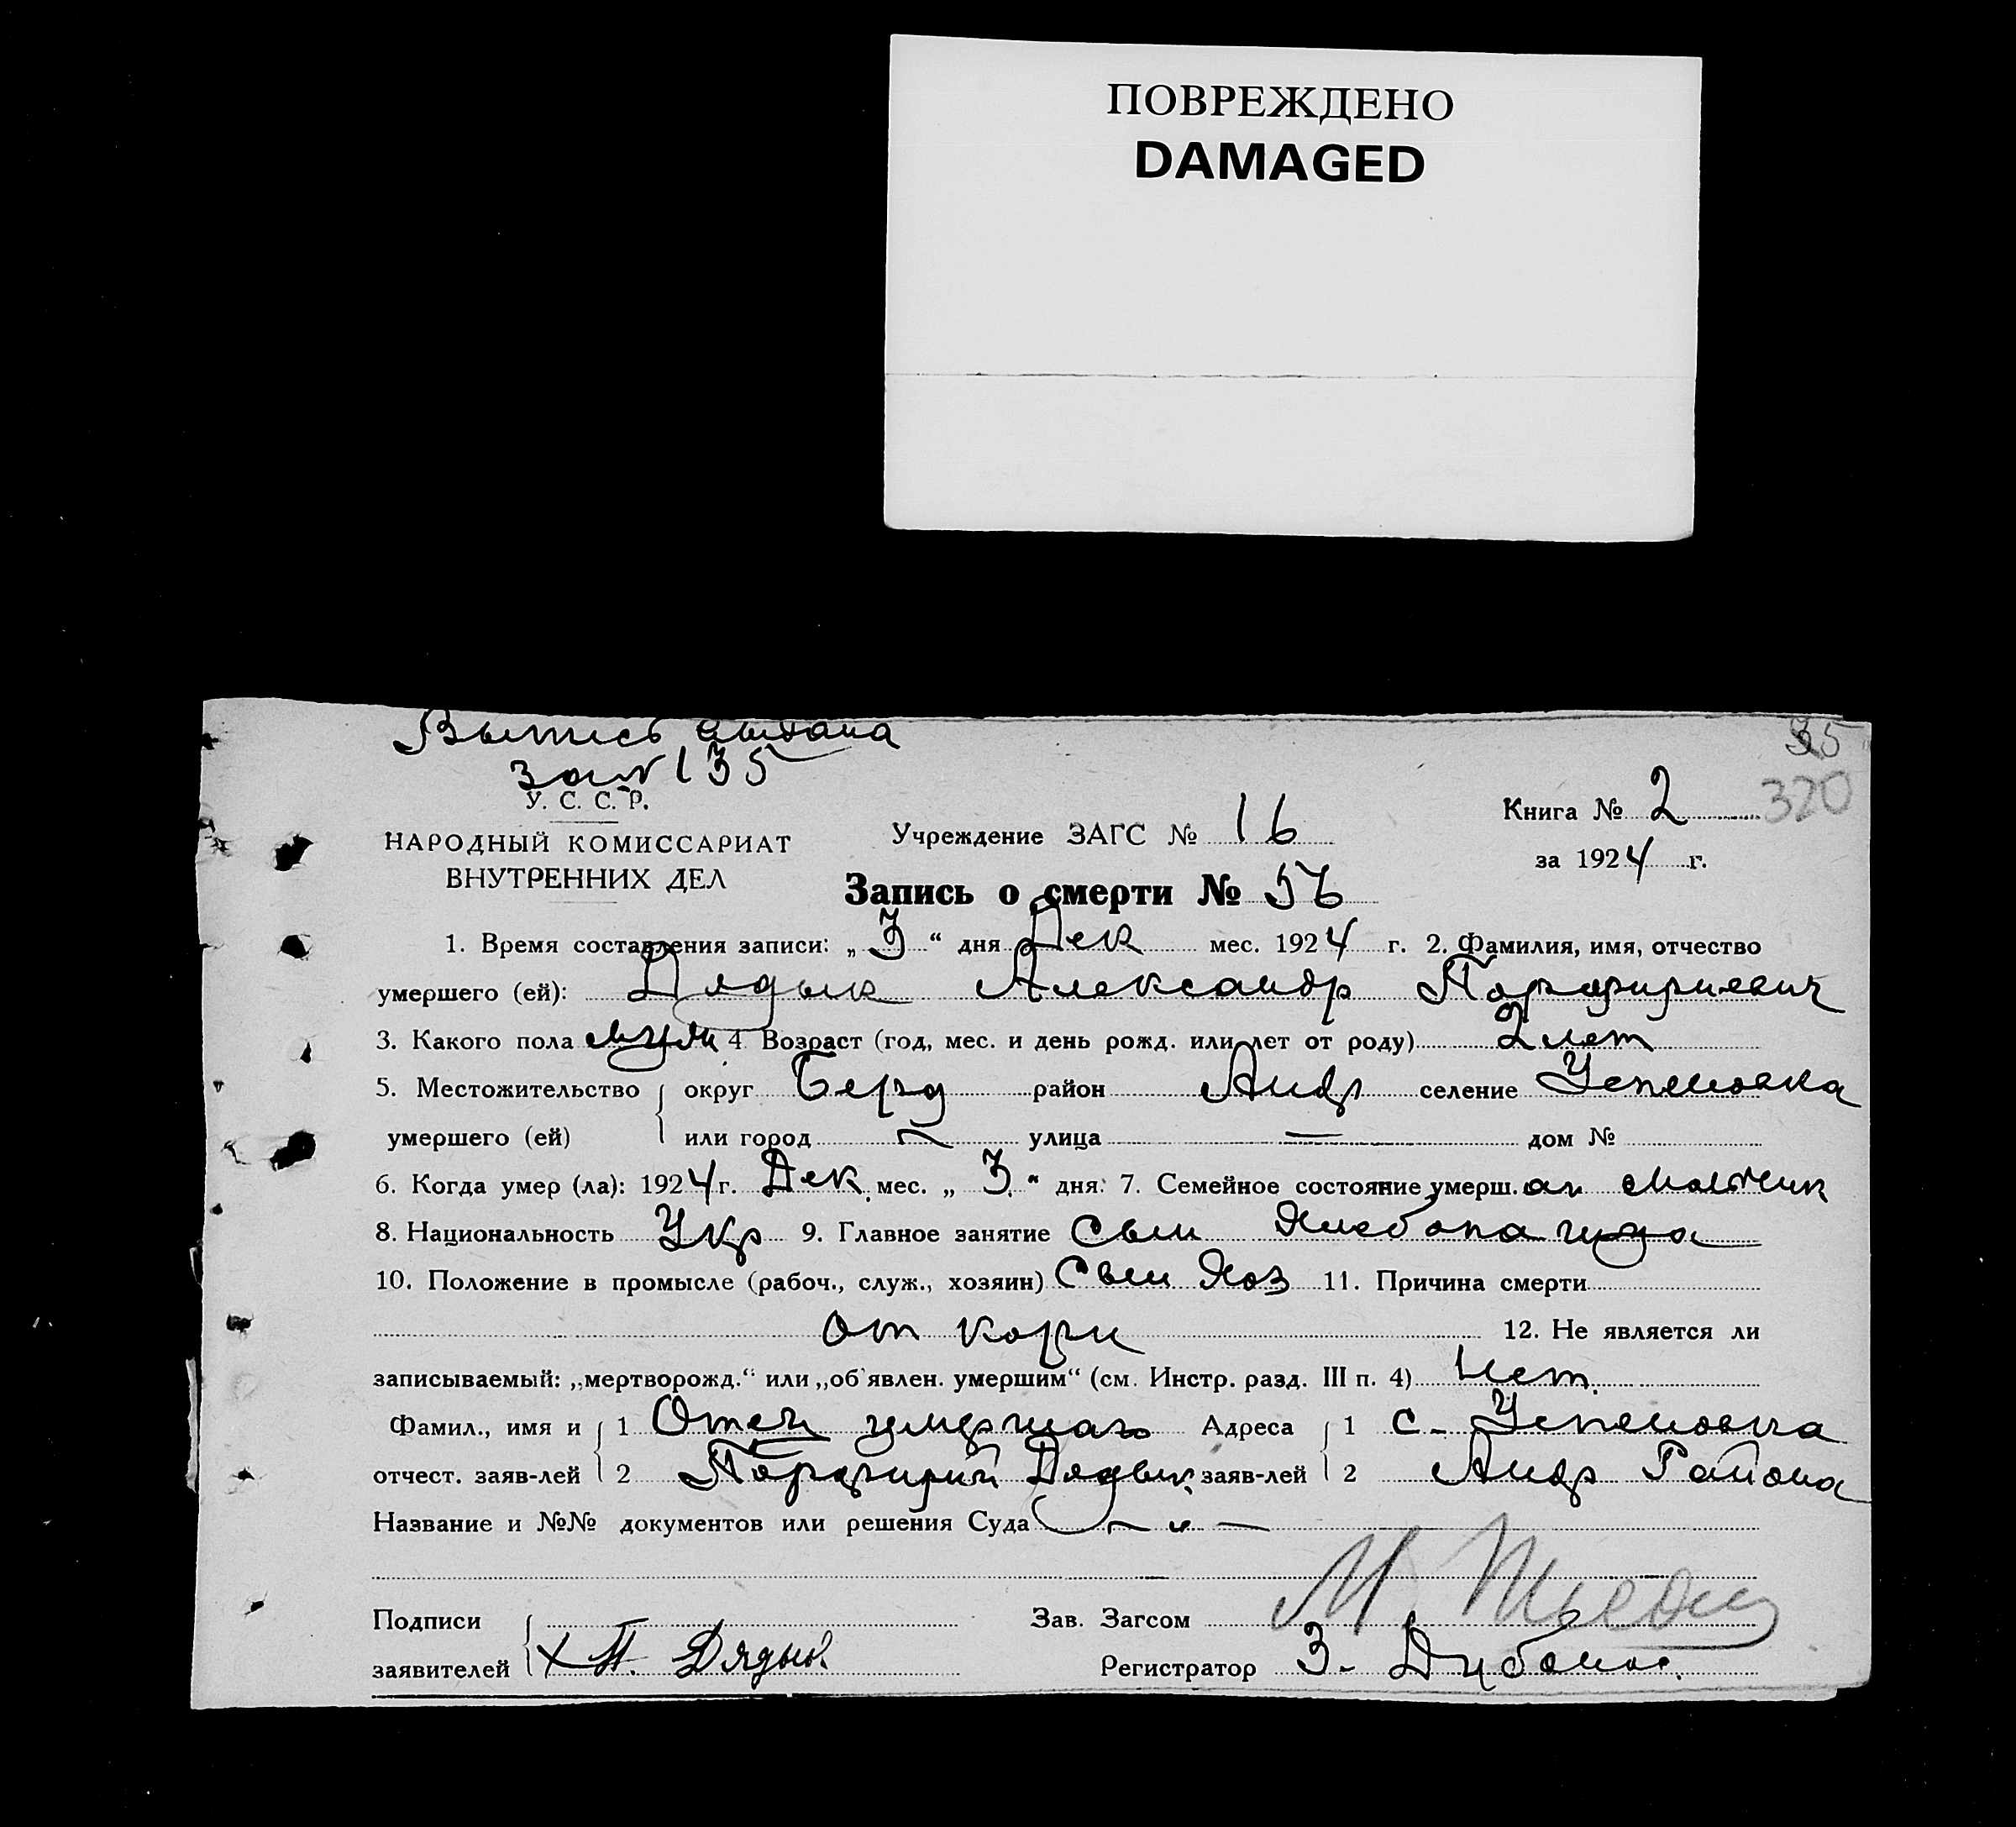 ПОВРЕЖДЕНО
DAMAGED
Выпись выдана
35
за № 135
320
У. С. С. Р.
НАРОДНЫЙ КОМИССАРИАТ
ВНУТРЕННИХ ДЕЛ
Учреждение ЗАГС № 16
Книга № 2
за 1924 г.
Запись о смерти № 56
1. Время составления записи: „3“ дня Дек мес. 1924 г. 2. Фамилия, имя, отчество
умершего (ей): Дядык Александр Порфириевич
3. Какого пола муж 4 Возраст (год, мес. и день рожд. или лет от роду) 2 лет
5. Местожительство округ Берд район Андр селение Успеновка
умершего (ей) или город — улица — дом №
6. Когда умер (ла): 1924 г. Дек. мес. „3.“ дня. 7. Семейное состояние умерш. мальчик
8. Национальность Укр 9. Главное занятие Сын Хлебопа
10. Положение в промысле (рабоч., служ., хозяин) Сын Хоз 11. Причина смерти
от кори 12. Не является ли
записываемый: „мертворожд.“ или „об'явлен. умершим“ (см. Инстр. разд. III п. 4) Нет.
Фамил., имя и 1 Отец умершаго Адреса 1 с. Успеновка
отчест. заяв-лей 2 Порфирий Дядык заяв-лей 2 Андр Района
Название и №№ документов или решения Суда —
Подписи Зав. Загсом М
заявителей х П. Дядык Регистратор З.